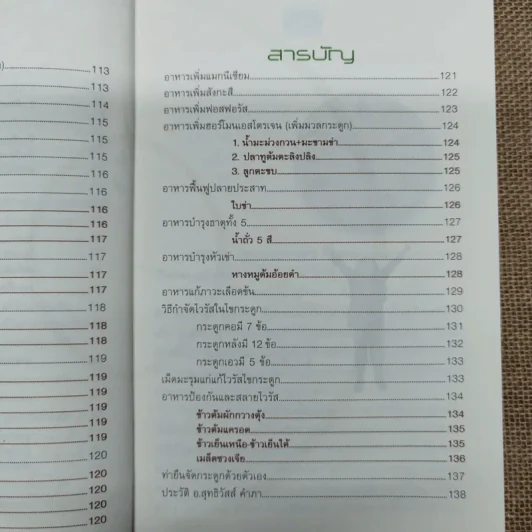 )
113
113
114
115
115
115
116
116
116
116
117
117
117
117
118
118
118
119
119
119
119
119
120
120
120
120
สารบัญ
อาหารเพิ่มแมกนีเซียม 121
อาหารเพิ่มสังกะสี 122
อาหารเพิ่มฟอสฟอรัส 123
อาหารเพิ่มฮอร์โมนเอสโตรเจน (เพิ่มมวลกระดูก) 124
1. น้ำมะม่วงกวน+มะขามข่า 124
2. ปลาทูต้มตะลิงปลิง 125
3. ลูกตะขบ 125
อาหารฟื้นฟูปลายประสาท 126
ใบข่า 126
อาหารบำรุงธาตุทั้ง 5 127
น้ำถั่ว 5 สี 127
อาหารบำรุงหัวเข่า 128
หางหมูต้มอ้อยดำ 128
อาหารแก้ภาวะเลือดข้น 129
วิธีกำจัดไวรัสในไขกระดูก 130
กระดูกคอมี 7 ข้อ 131
กระดูกหลังมี 12 ข้อ 132
กระดูกเอวมี 5 ข้อ 133
เม็ดมะรุมแก่แก้ไวรัสไขกระดูก 133
อาหารป้องกันและสลายไวรัส 134
ข้าวต้มผักกวางตุ้ง 134
ข้าวต้มแครอต 135
ข้าวเย็นเหนือ-ข้าวเย็นใต้ 135
เมล็ดชวงเจีย 136
ท่ายืนจัดกระดูกด้วยตัวเอง 137
ประวัติ อ.สุทธิวัสส์ คำภา 138